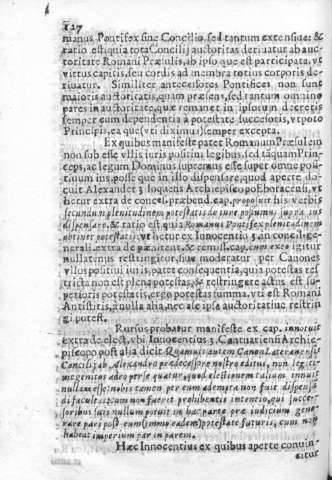 127
manus Pontifex sine Concilio, sed tantum extensiuè; &
ratio est, quia tota Concilij auctoritas deriuatur ab au-
ctoritate Romani Præsulis, ab ipsoque est participata, vt
virtus capitis, seu cordis ad membra totius corporis de-
riuatur. Similiter antecessores Pontifices non sunt
maioris auctoritatis, quam præsens, sed tantum omnino
pares in auctoritate, quæ remanet in ipsorum decretis
semper cum dependentia à potestate successoris, vt poto
Principis, ea que (vti diximus) semper excepta.
Ex quibus manifestè patet Romanum Præsulem
non sub esse vllis iuris positiui legibus, sed tãquam Prin-
ceps, ac legum Dominus supremus esse super omne po-
sitiuum ius posse que in illo dispensare, quod aperte, do-
cuit Alexander 3. loquens Archiepiscopo Eboracensi, vt
hetur extra de concess. præbend. cap. proposuit his verbis
secundum plenitudinem potestatis de iure possumus supra ius
dispensare. & ratio est quia Romanus Pontifex plenitudinem
obtinet potestatis: vt hetur ex Innocentio 3. in concil. gene-
rali. extra de pœnitent, & remiss. cap. cum ex eo igitur
nullatenus restringitur, siue moderatur per Canones
vllos positiui iuris, patet consequentia, quia potestas res-
tricta non est plena potestas, & restringere actus est su-
perioris potestatis, ergo potestas summa, vti est Romani
Antistitis, à nulla alia, nec ab ipsa auctoritatius restrin-
gi potest.
Rursus probatur manifestè ex cap. innotuit
extra de elect. vbi Innocentius 3. Cantuariensi Archie-
piscopo post alia dicit Quamuis autem Canon Lateranensis
Concilij ab Alexandro prædecessore nostro editus, non legiti-
me genitos adeo persequatur, quod electionem talium innuit
nullam esse; nobis tamen per eum adempta non fuit dispensã-
di facultas: cum non fuerit prohibentis intentio, qui succes-
soribus suis nullum potuit in hac parte præ iudicium gene-
rare pari post eum (immo eadem) potestate functuris, cum non
habeat imperium par in parem.
Hæc Innocentius ex quibus aperte conuin-
citur